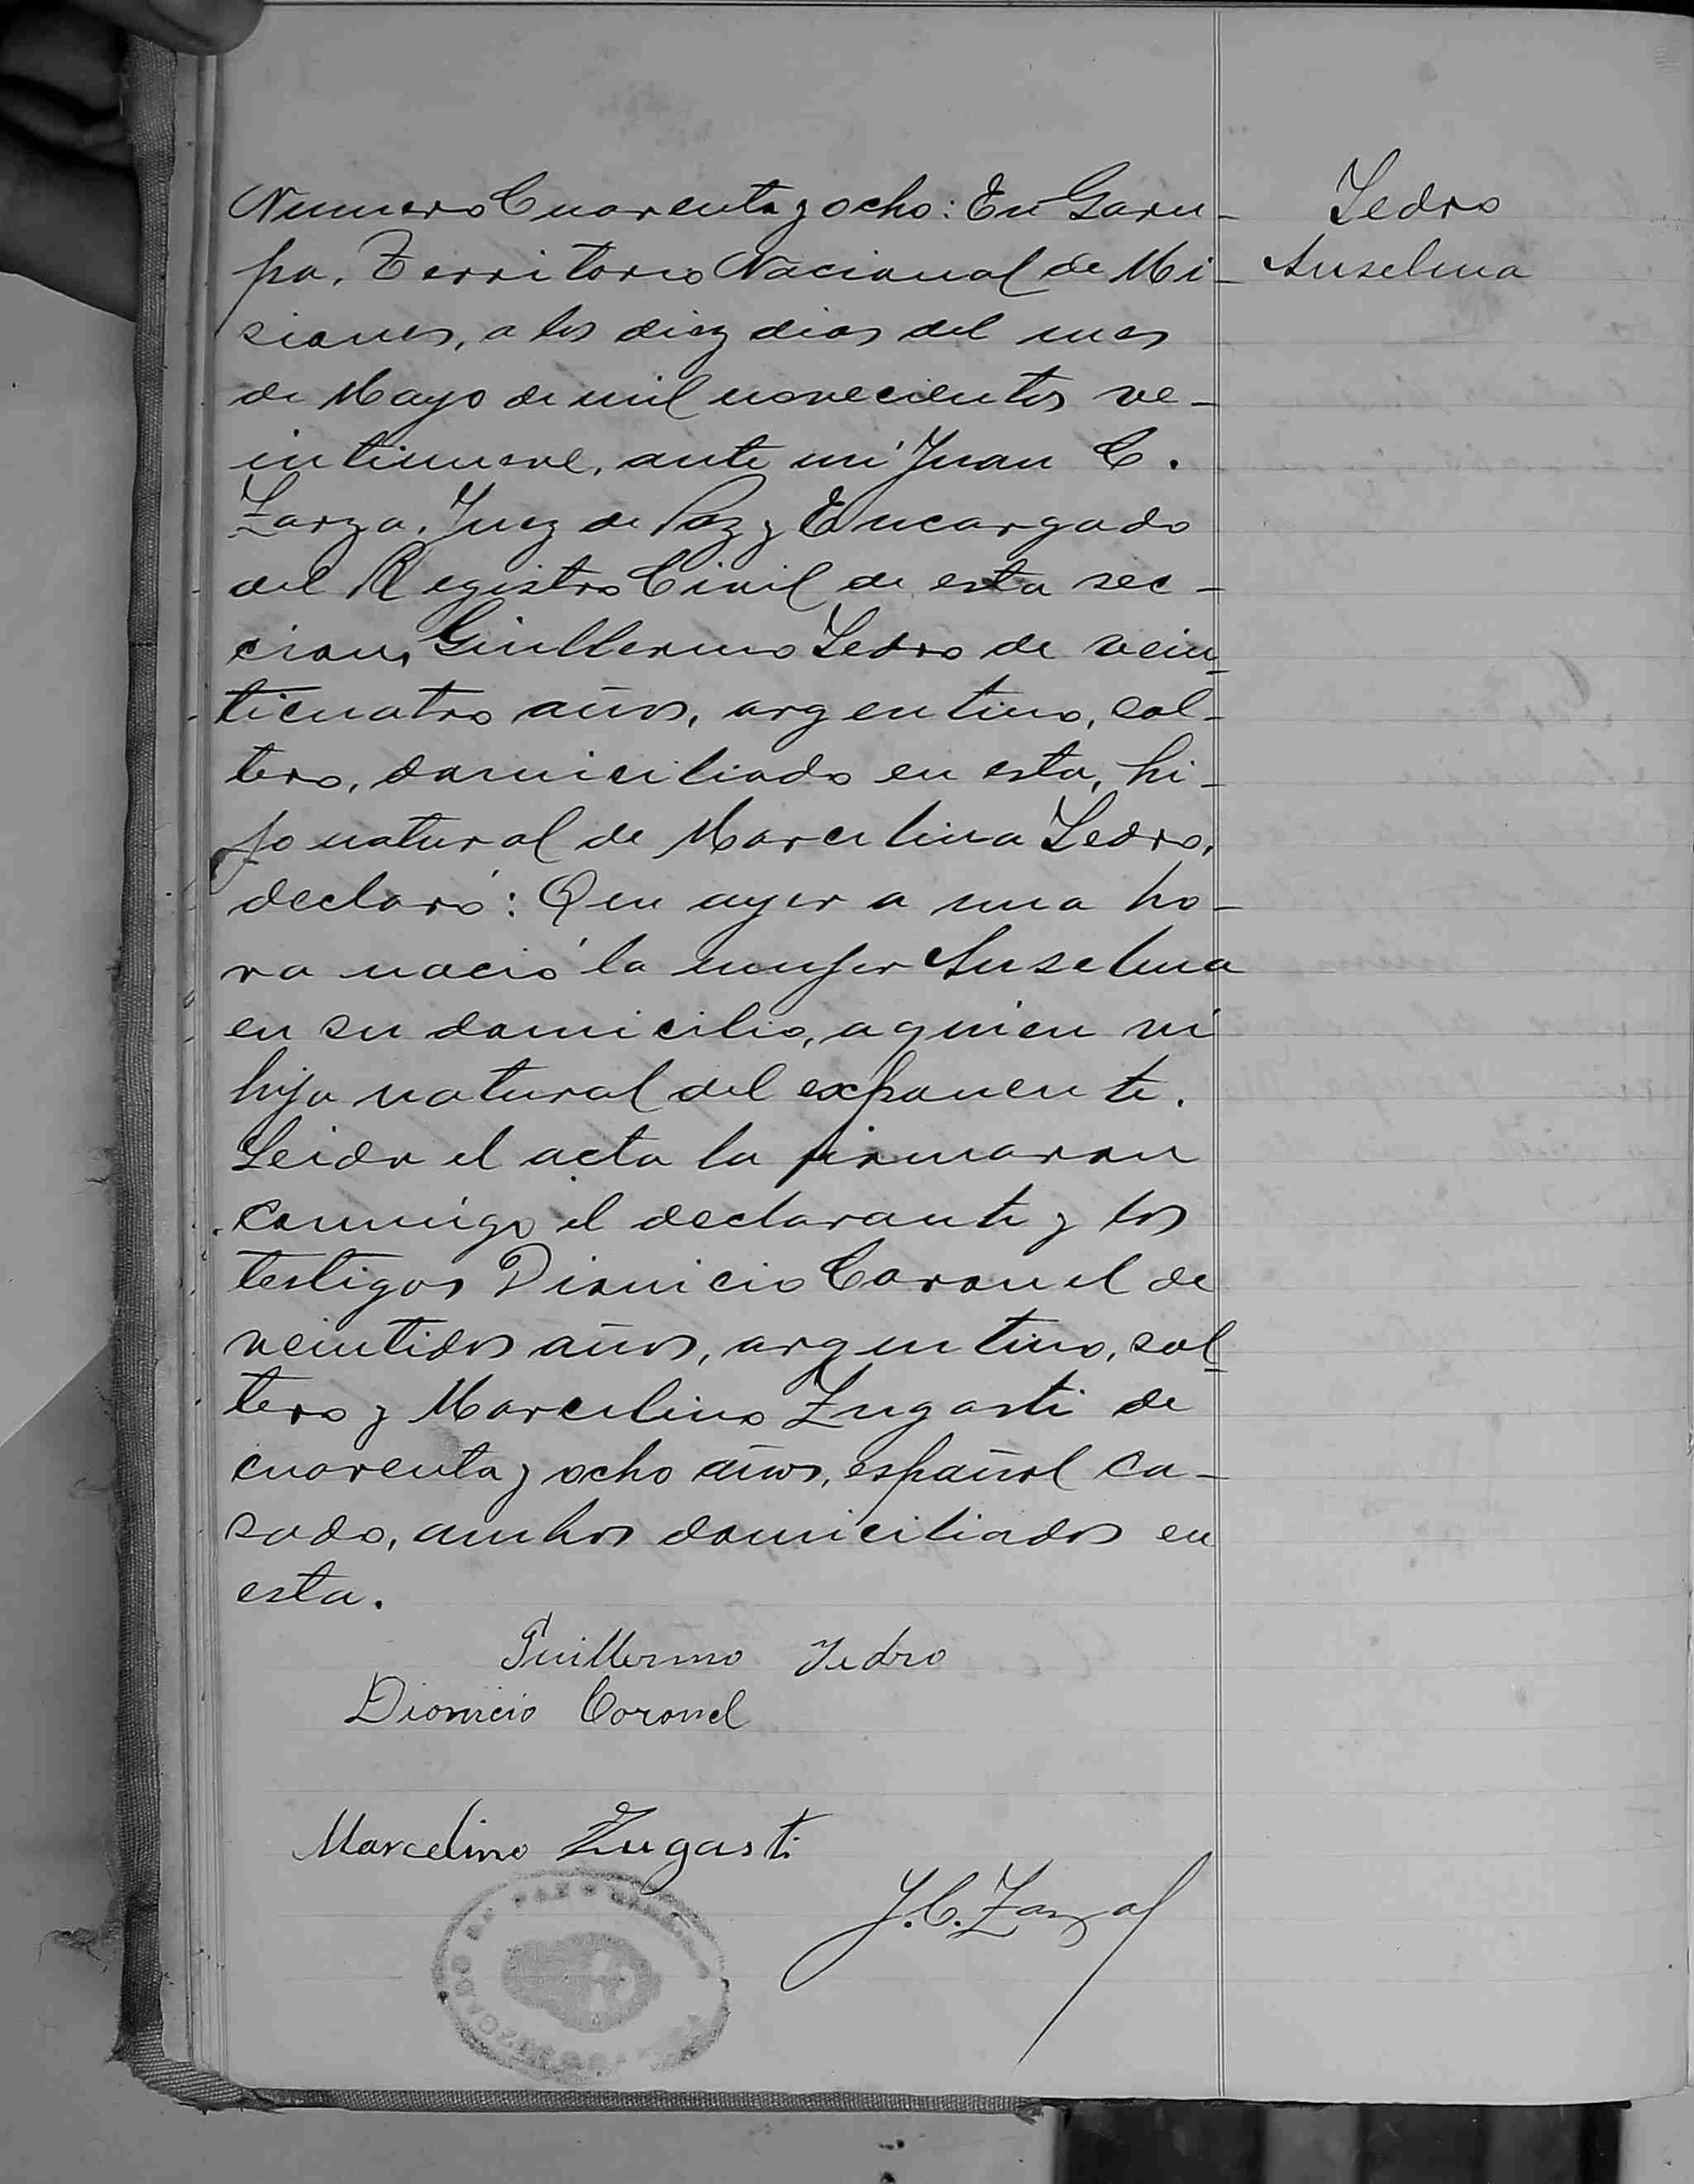 Numero Cuarenta y ocho: En Garu-
pa, Territorio Nacional de Mi-
siones, a los diez dias del mes
de Mayo de mil novecientos ve-
intinueve, ante mi Juan C.
Zarza, Juez de Paz y Encargado
del Registro Civil de esta sec-
cion, Guillermo Ledro de vein-
ticuatro años, argentino, sol-
tero, domiciliado en esta, hi-
jo natural de Marcelina Ledro,
declaró: Que ayer a una ho-
ra nació la mujer Anselma
en su domicilio, a quien vi
hija natural del exponente.
Leida el acta la firmaron
conmigo el declarante y los
testigos Dionicio Coronel de
veintidos años, argentino, sol-
tero y Marcelino Zugasti de
cuarenta y ocho años, español ca-
sado, ambos domiciliados en
esta.
Ledro
Anselma
Guillermo Ledro
Dionicio Coronel
Marcelino Zugasti
J. C. Zarza
JUZGADO DE PAZ